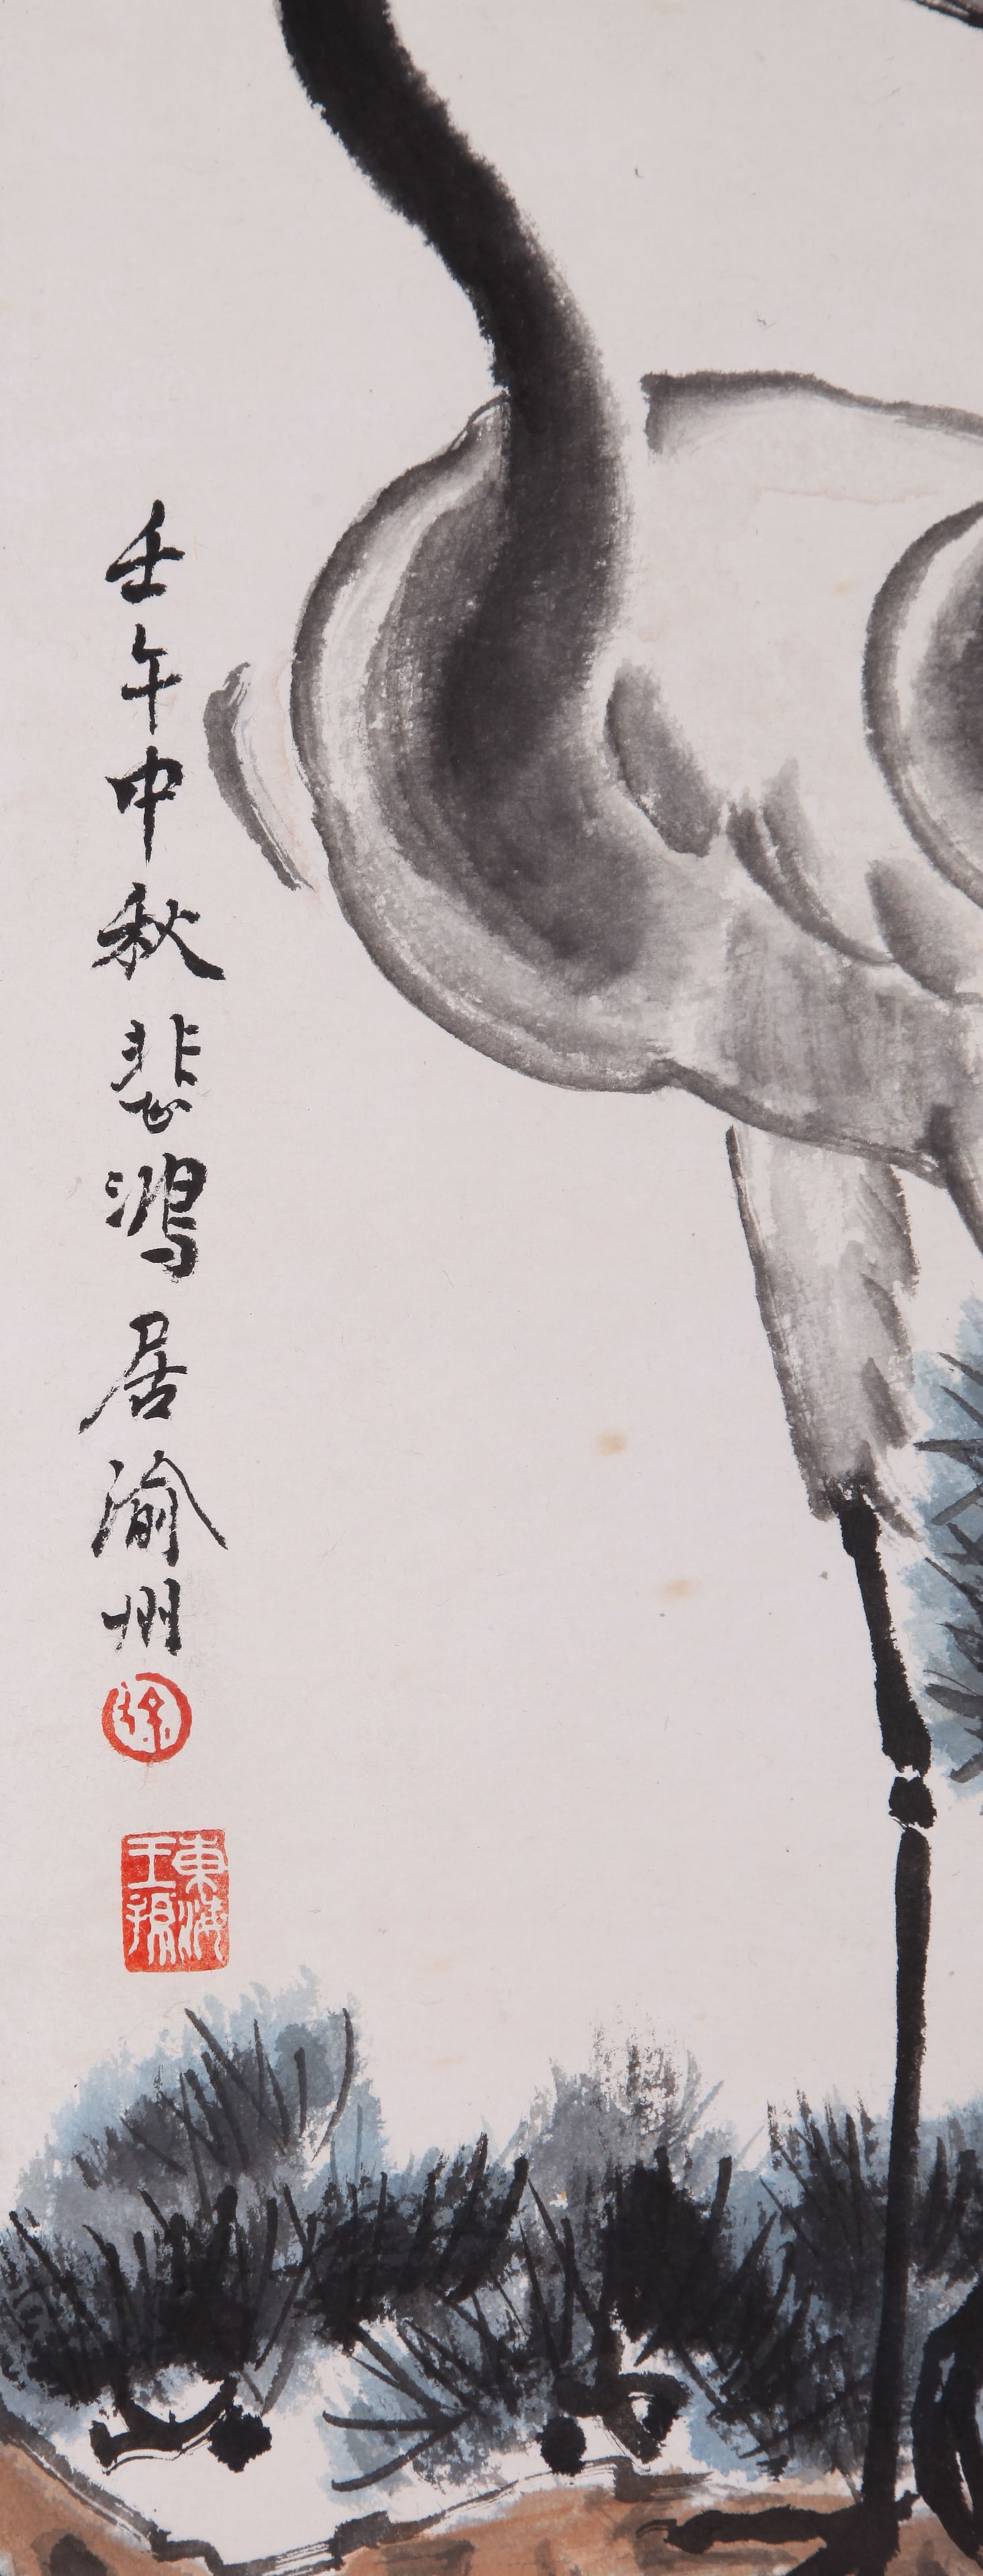 壬午中秋悲鴻居渝州
徐
東海王孫